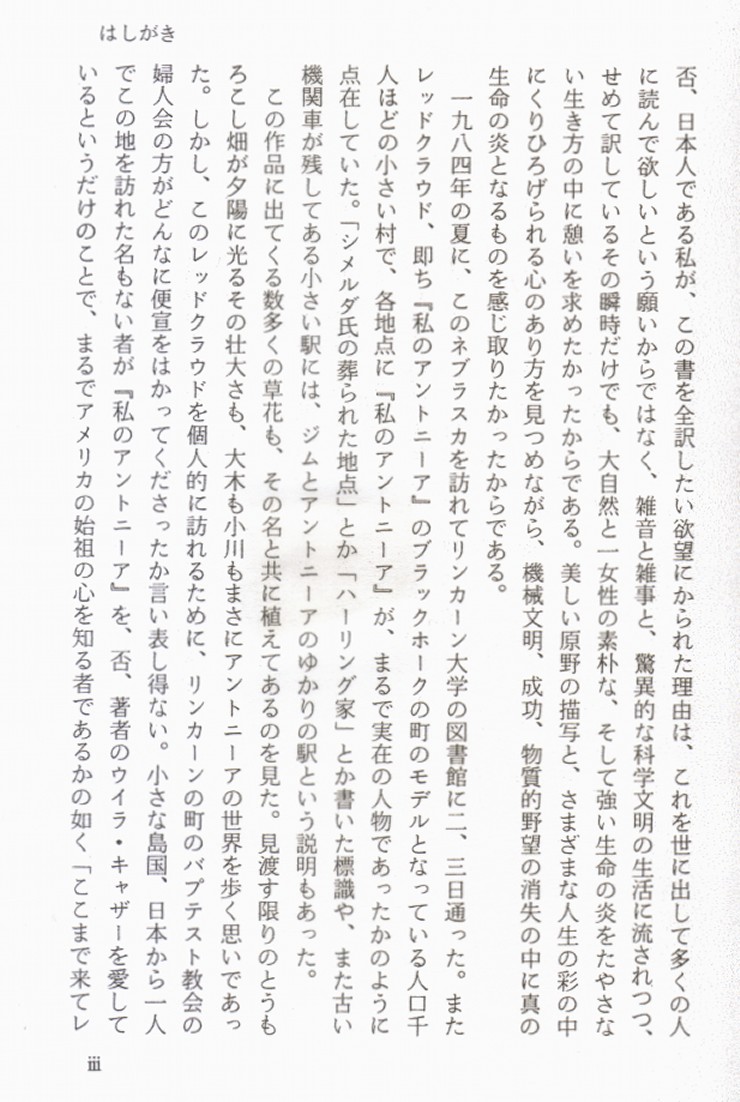 はしがき
否、日本人である私が、この書を全訳したい欲望にかられた理由は、これを世に出して多くの人
に読んで欲しいという願いからではなく、雑音と雑事と、驚異的な科学文明の生活に流されつつ、
せめて訳しているその瞬時だけでも、大自然と一女性の素朴な、そして強い生命の炎をたやさな
い生き方の中に憩いを求めたかったからである。美しい原野の描写と、さまざまな人生の彩の中
にくりひろげられる心のあり方を見つめながら、機械文明、成功、物質的野望の消失の中に真の
生命の炎となるものを感じ取りたかったからである。
一九八四年の夏に、このネブラスカを訪れてリンカーン大学の図書館に二、三日通った。また
レッドクラウド、即ち『私のアントニーア』のブラックホークの町のモデルとなっている人口千
人ほどの小さい村で、各地点に『私のアントニーア』が、まるで実在の人物であったかのように
点在していた。「シメルダ氏の葬られた地点」とか「ハーリング家」とか書いた標識や、また古い
機関車が残してある小さい駅には、ジムとアントニーアのゆかりの駅という説明もあった。
この作品に出てくる数多くの草花も、その名と共に植えてあるのを見た。見渡す限りのとうも
ろこし畑が夕陽に光るその壮大さも、大木も小川もまさにアントニーアの世界を歩く思いであっ
た。しかし、このレッドクラウドを個人的に訪れるために、リンカーンの町のバプテスト教会の
婦人会の方がどんなに便宣をはかってくださったか言い表し得ない。小さな島国、日本から一人
でこの地を訪れた名もない者が『私のアントニーア』を、否、著者のウイラ・キャザーを愛して
いるというだけのことで、まるでアメリカの始祖の心を知る者であるかの如く「ここまで来てレ
iii